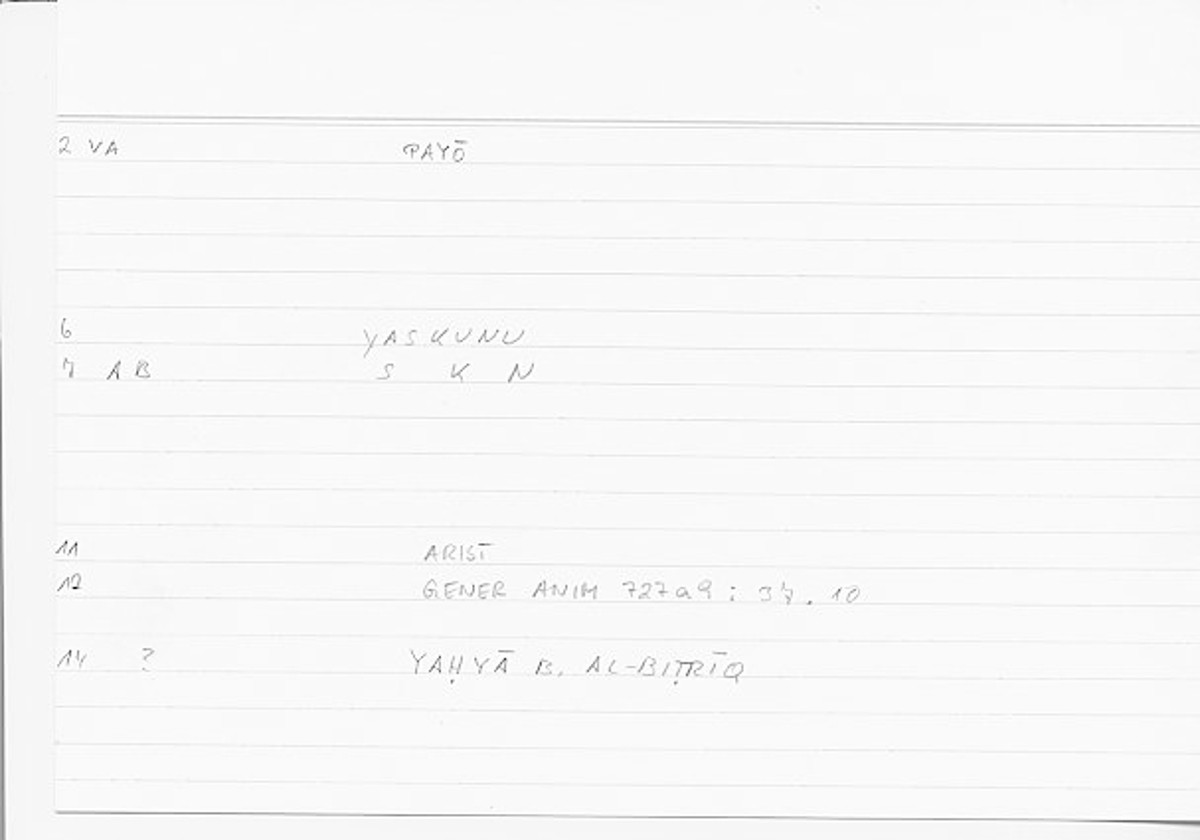 2 VA PAYŌ
6 YASKUNU
7 AB S K N
11 ARIST
12 GENER ANIM 727a9 : 37. 10
14 ? YAḤYĀ B. AL-BIṬRĪQ